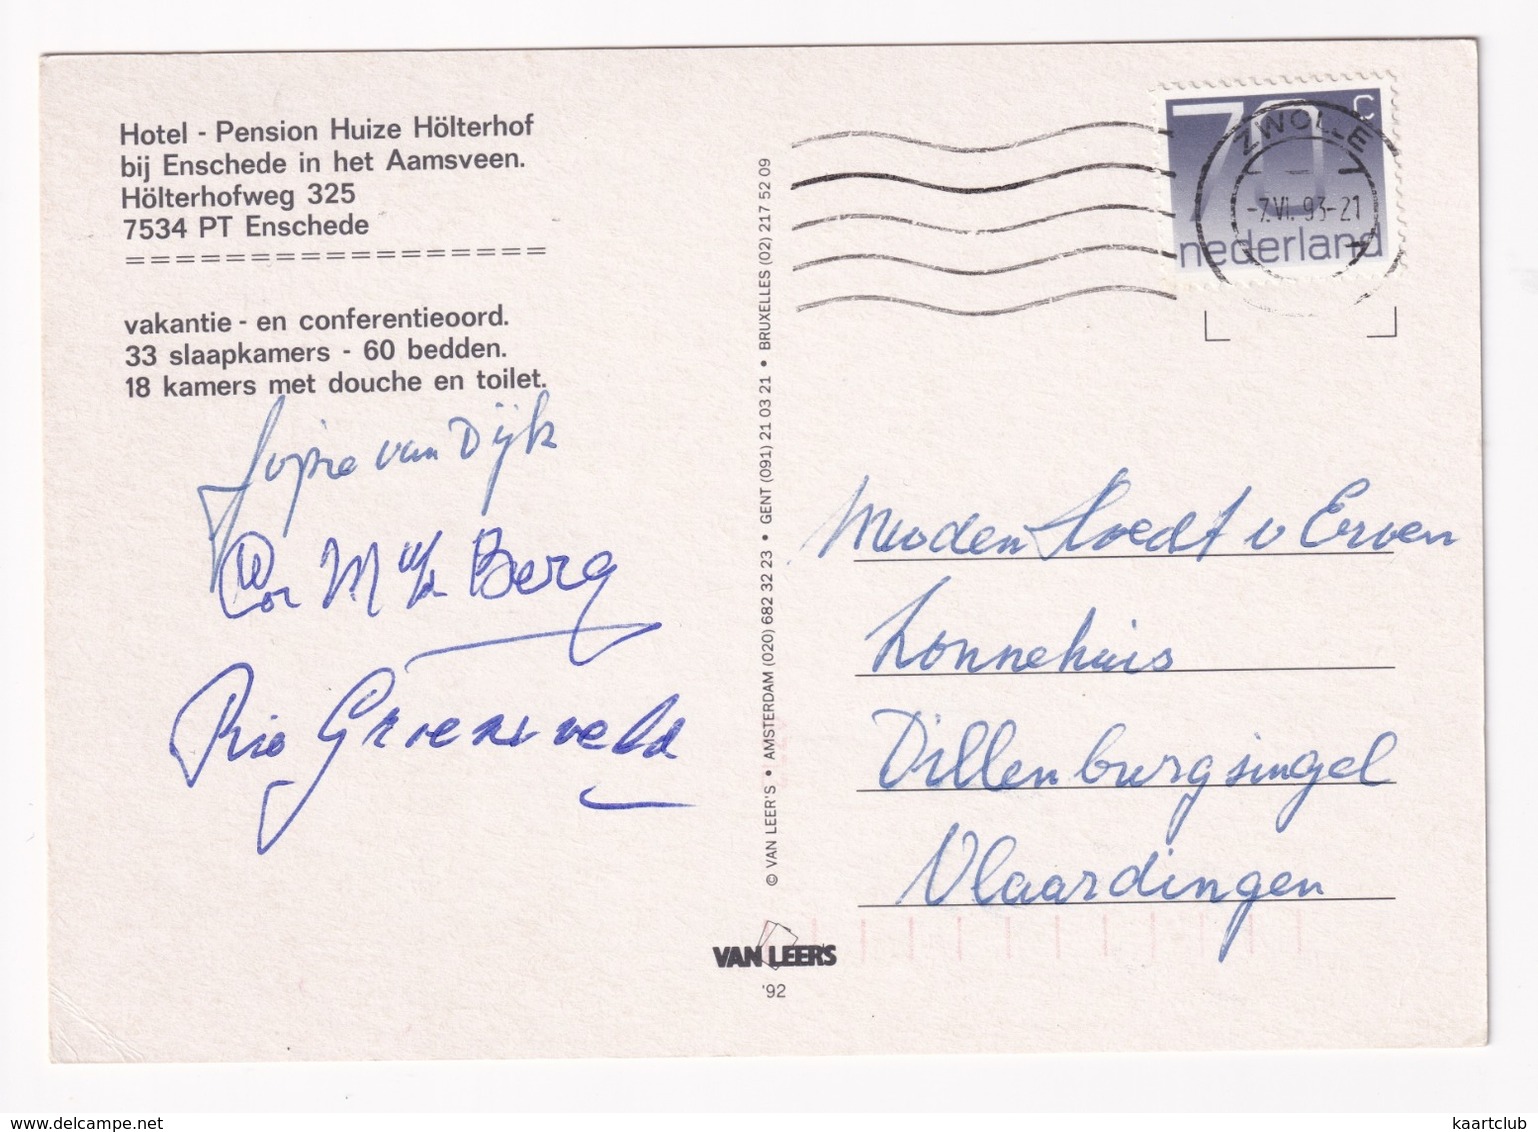 Hotel - Pension Huize Hölterhof
bij Enschede in het Aamsveen.
Hölterhofweg 325
7534 PT Enschede
==================
vakantie - en conferentieoord.
33 slaapkamers - 60 bedden.
18 kamers met douche en toilet.
van Dijk
Cor M v/d Berg
Rie Groeneveld
© VAN LEER'S • AMSTERDAM (020) 682 32 23 • GENT (091) 21 03 21 • BRUXELLES (02) 217 52 09
VAN LEER'S
'92
70 c
nederland
ZWOLLE
-7.VI. 93-21
v Erven
Zonnehuis
Dillenburgsingel
Vlaardingen
kaartclub
www.delcampe.net